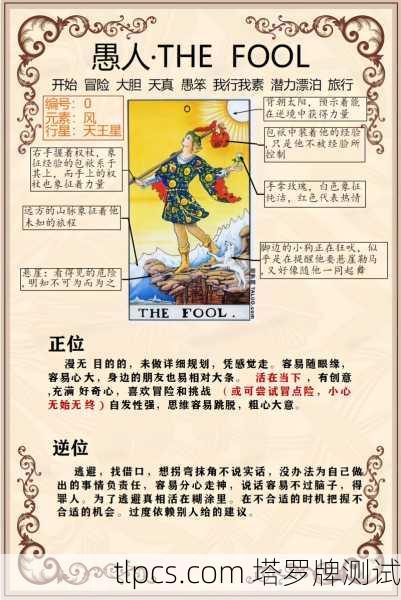 愚人·THE FOOL
开始 冒险 大胆 天真 愚笨 我行我素 潜力漂泊 旅行
编号：0
元素：风
行星：天王星
背朝太阳，预示着能
在逆境中获得力量
包袱中装着他的经验
，只是他不被经验所
控制
右手握着权杖，象
征经验的包袱系于
其上，而手上的权
杖也象征着力量
手拿玫瑰，白色象征
纯洁，红色代表热情
远方的山脉象征着他
未知的旅程
脚边的小狗正在狂吠，似
乎是在提醒他要悬崖勒马
，又好像随他一同起舞
悬崖：看得见的危险
，明知不可为而为之
0
THE FOOL.
TALUO.com
正位
漫无 目的的，未做详细规划，凭感觉走。容易随眼缘，
容易心大，身边的朋友也易相对大条。 活在当下 ，有创意
，充满 好奇心，喜欢冒险和挑战 （或可尝试冒点险，小心
无始无 终）自发性强，思维容易跳脱，粗心大意。
逆位
逃避，找借口，想拐弯抹角不说实话，没办法为自己做
出的事情负责任，容易分心走神，说话容易不过脑子，得
罪人。为了逃避真相活在糊涂里。在不合适的时机把握不
合适的机会。过度依赖别人给的建议。
tlpcs.com 塔罗牌测试